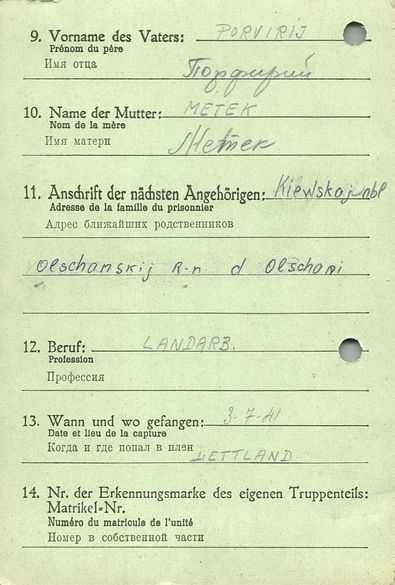 9. Vorname des Vaters: PORVIRIJ
Prénom du père
Имя отца Порфирий
10. Name der Mutter: METEK
Nom de la mère
Имя матери Метек
11. Anschrift der nächsten Angehörigen: Kiewskaj obl
Adresse de la famille du prisonnier
Адрес ближайших родственников
Olschanskij R-n d Olschani
12. Beruf: LANDARB.
Profession
Профессия
13. Wann und wo gefangen: 3-7-41
Date et lieu de la capture
Когда и где попал в плен LETTLAND
14. Nr. der Erkennungsmarke des eigenen Truppenteils:
Matrikel-Nr.
Numéro du matricule de l'unité
Номер в собственной части